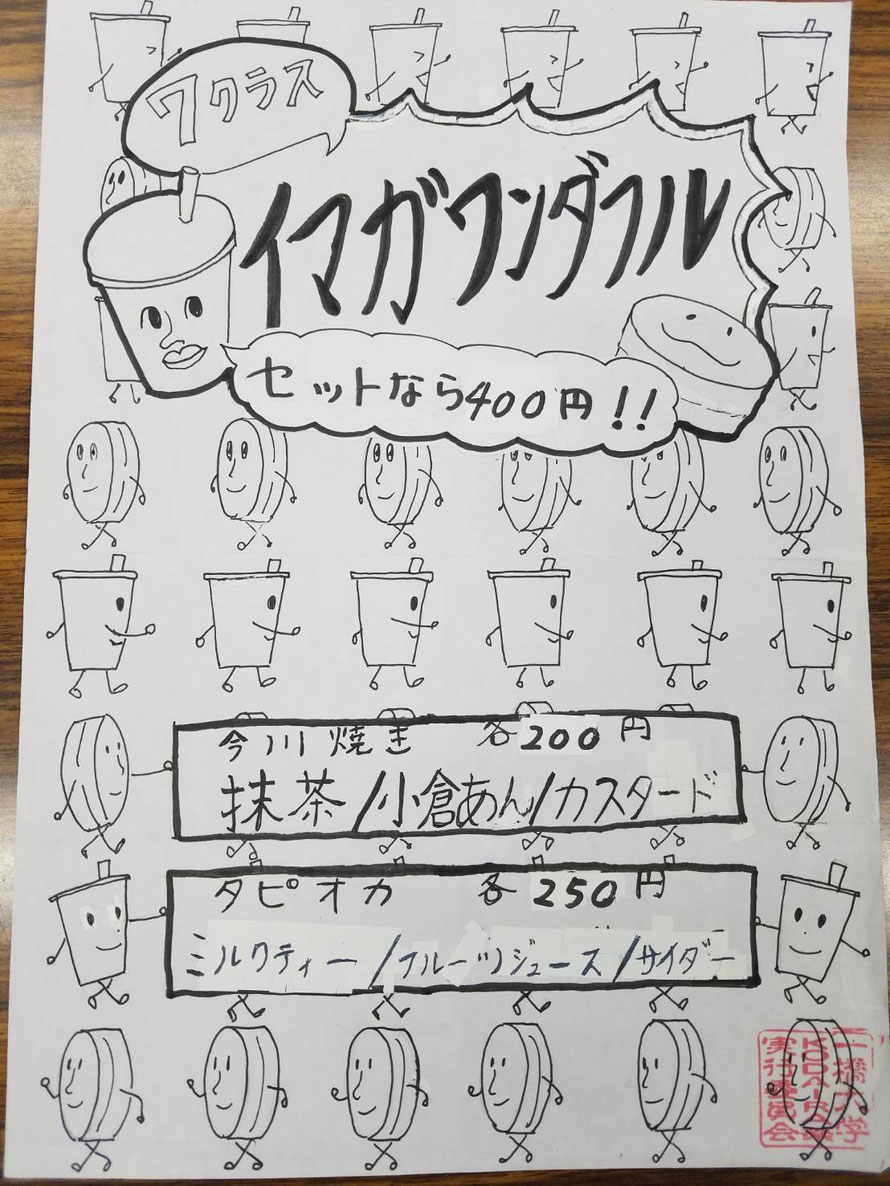 7クラス
イマガワンダフル
セットなら400円!!
今川焼き 各200円
抹茶/小倉あん/カスタード
タピオカ 各250円
ミルクティー/フルーツジュース/サイダー
一橋大学
KODAIRA祭
実行委員会